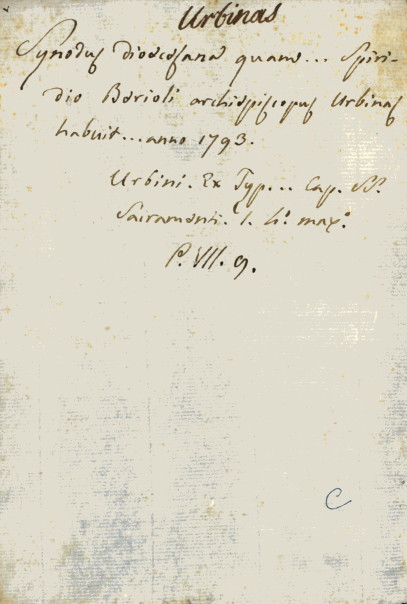 Urbinas
Synodus dioecesana quam... Spiri-
dio Berioli archiepiscopus Urbinas
habuit... anno 1793.
Urbini. Ex Typ... Cap. SS.
Sacramenti. 1. h.º max.º
P. VII. 9.
C